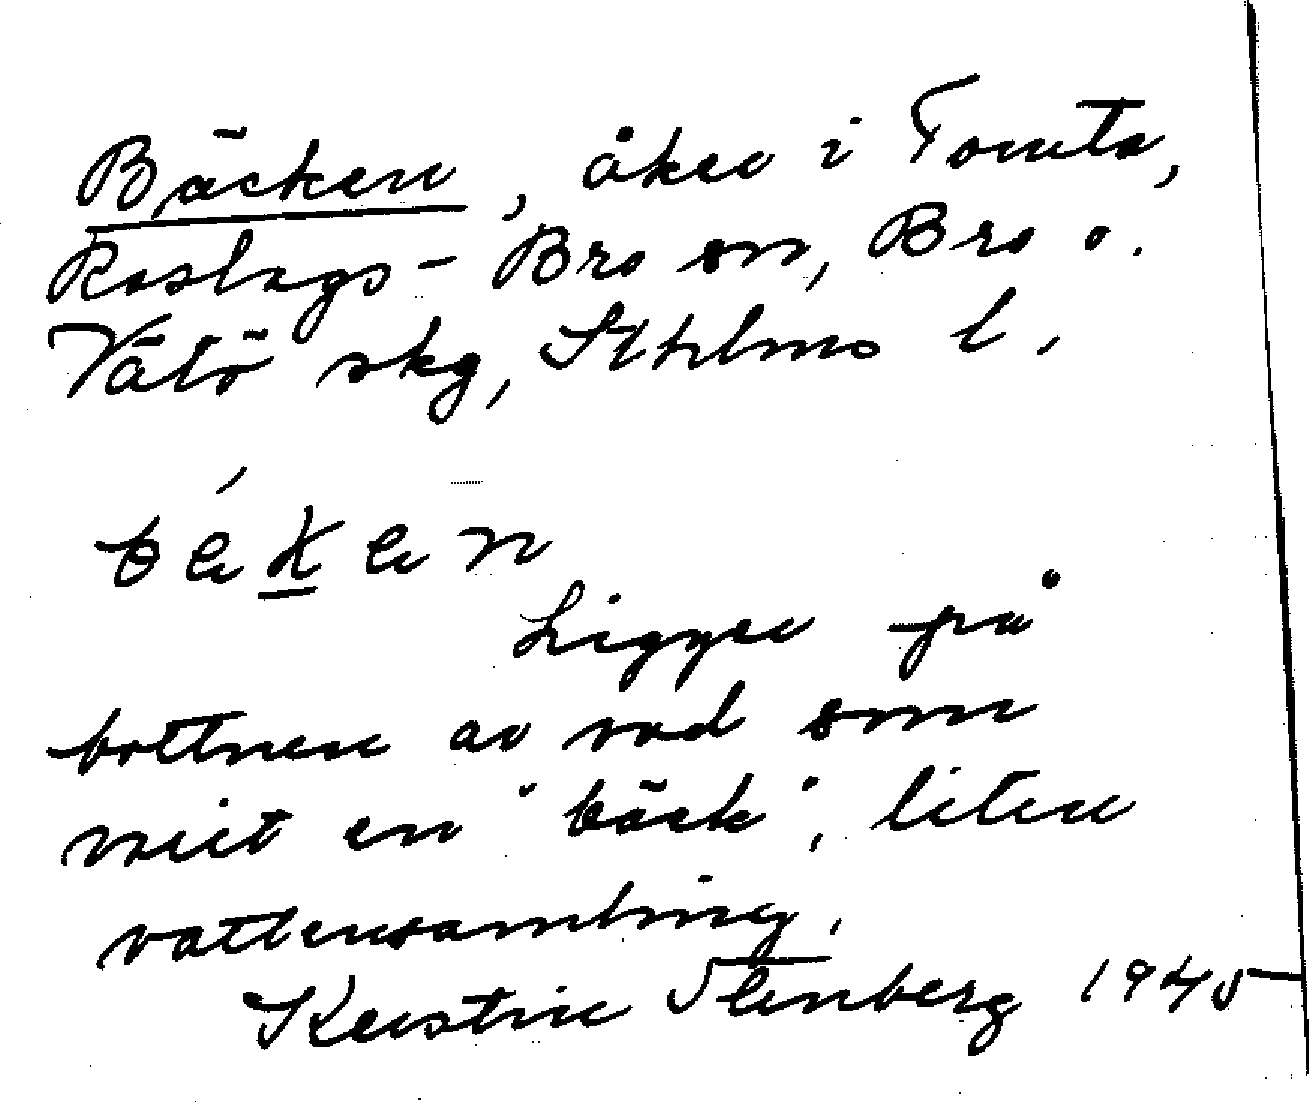 Bäcken, åker i Tomta,
Roslags-Bro sn, Bro o.
Vätö skg, Sthlms l.
béken
Ligger på
bottnen av vad som
varit en "bäck", liten
vattensamling.
Kerstin Stenberg 1945